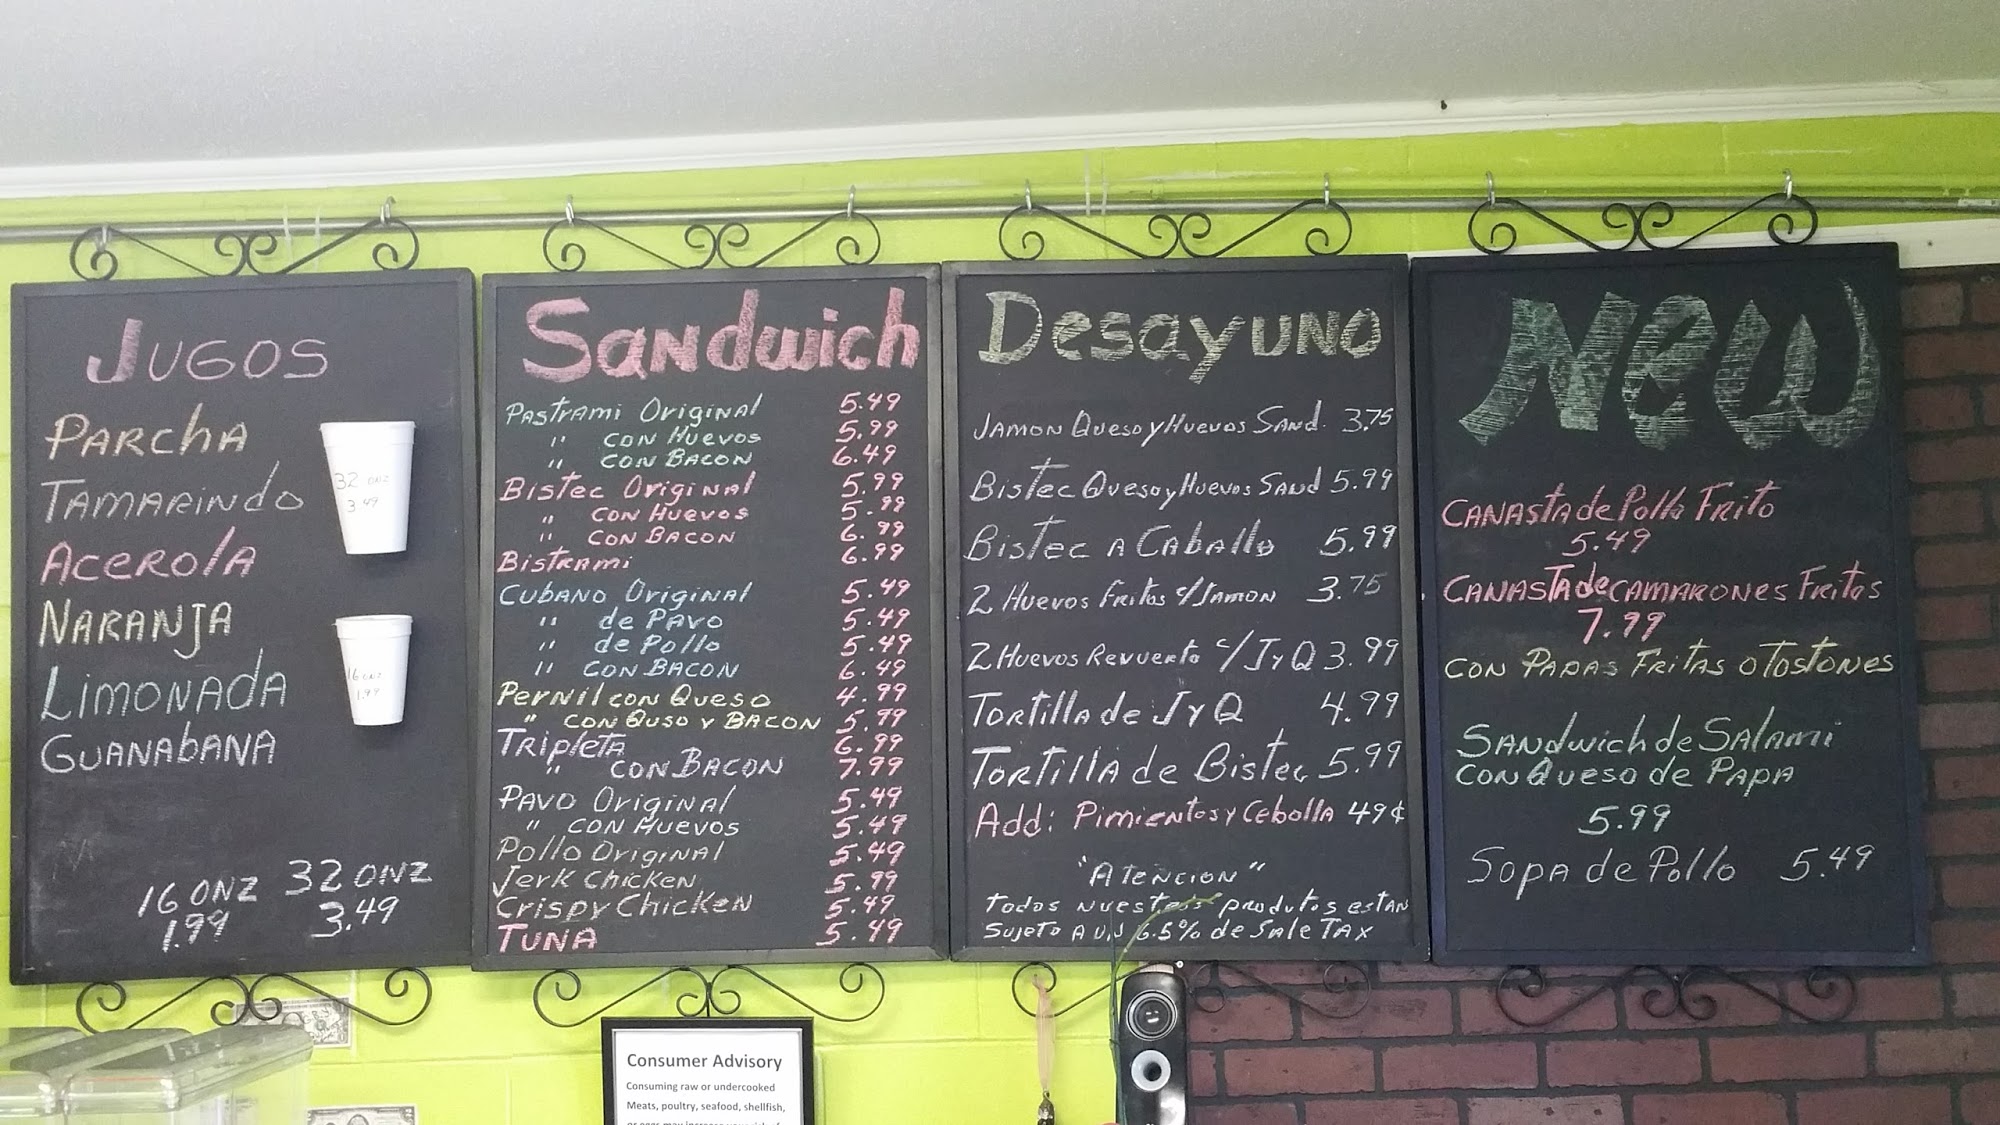 JUGOS
PARChA
TAMARINdo
AceRolA
NARANJA
LIMONAdA
GUANAbANA
32 onz
3.49
16 onz
1.99
16 ONZ 32 ONZ
1.99 3.49
SANdwich
PASTRAMI ORiGiNAl 5.49
" CON HUEVOS 5.99
" CON BACON 6.49
BisTec ORiGiNAl 5.99
" CON HUEVOS 5.99
" CON BACON 6.99
BisTRAMi 6.99
CUBANO ORiGiNAl 5.49
" de PAVO 5.49
" de Pollo 5.49
" CON BACON 6.49
PeRNil CON QUeso 4.99
" CON QUSO Y BACON 5.99
TRipleTA 6.99
" CON BACON 7.99
PAVO ORiGiNAl 5.49
" CON HUEVOS 5.49
Pollo ORiGiNAl 5.49
JeRk ChickeN 5.99
CRispy ChickeN 5.49
TUNA 5.49
DesAYUNO
JAMON QUeso y HUeVos SANd. 3.75
BisTec QUeso y HUeVos SANd 5.99
BisTec A CAbAllo 5.99
2 HUeVos FRiTos c/JAMON 3.75
2 HUeVos ReVUeRTo c/ J Y Q 3.99
TORTillA de J y Q 4.99
TORTillA de BisTec 5.99
Add: PimieNTos y CebollA 49¢
"ATeNCiON"
Todos NUesTROs pRodUcTos esTAN
SUjeTo A UN 6.5% de SAle TAX
New
CANASTA de Pollo FRiTo
5.49
CANASTA de CAMARONES FRiTos
7.99
CON PAPAS FRiTAS o TosTONES
SANdwich de SALAMi
CON QUeso de PAPA
5.99
SopA de Pollo 5.49
Consumer Advisory
Consuming raw or undercooked
Meats, poultry, seafood, shellfish,
or eggs may increase your risk of